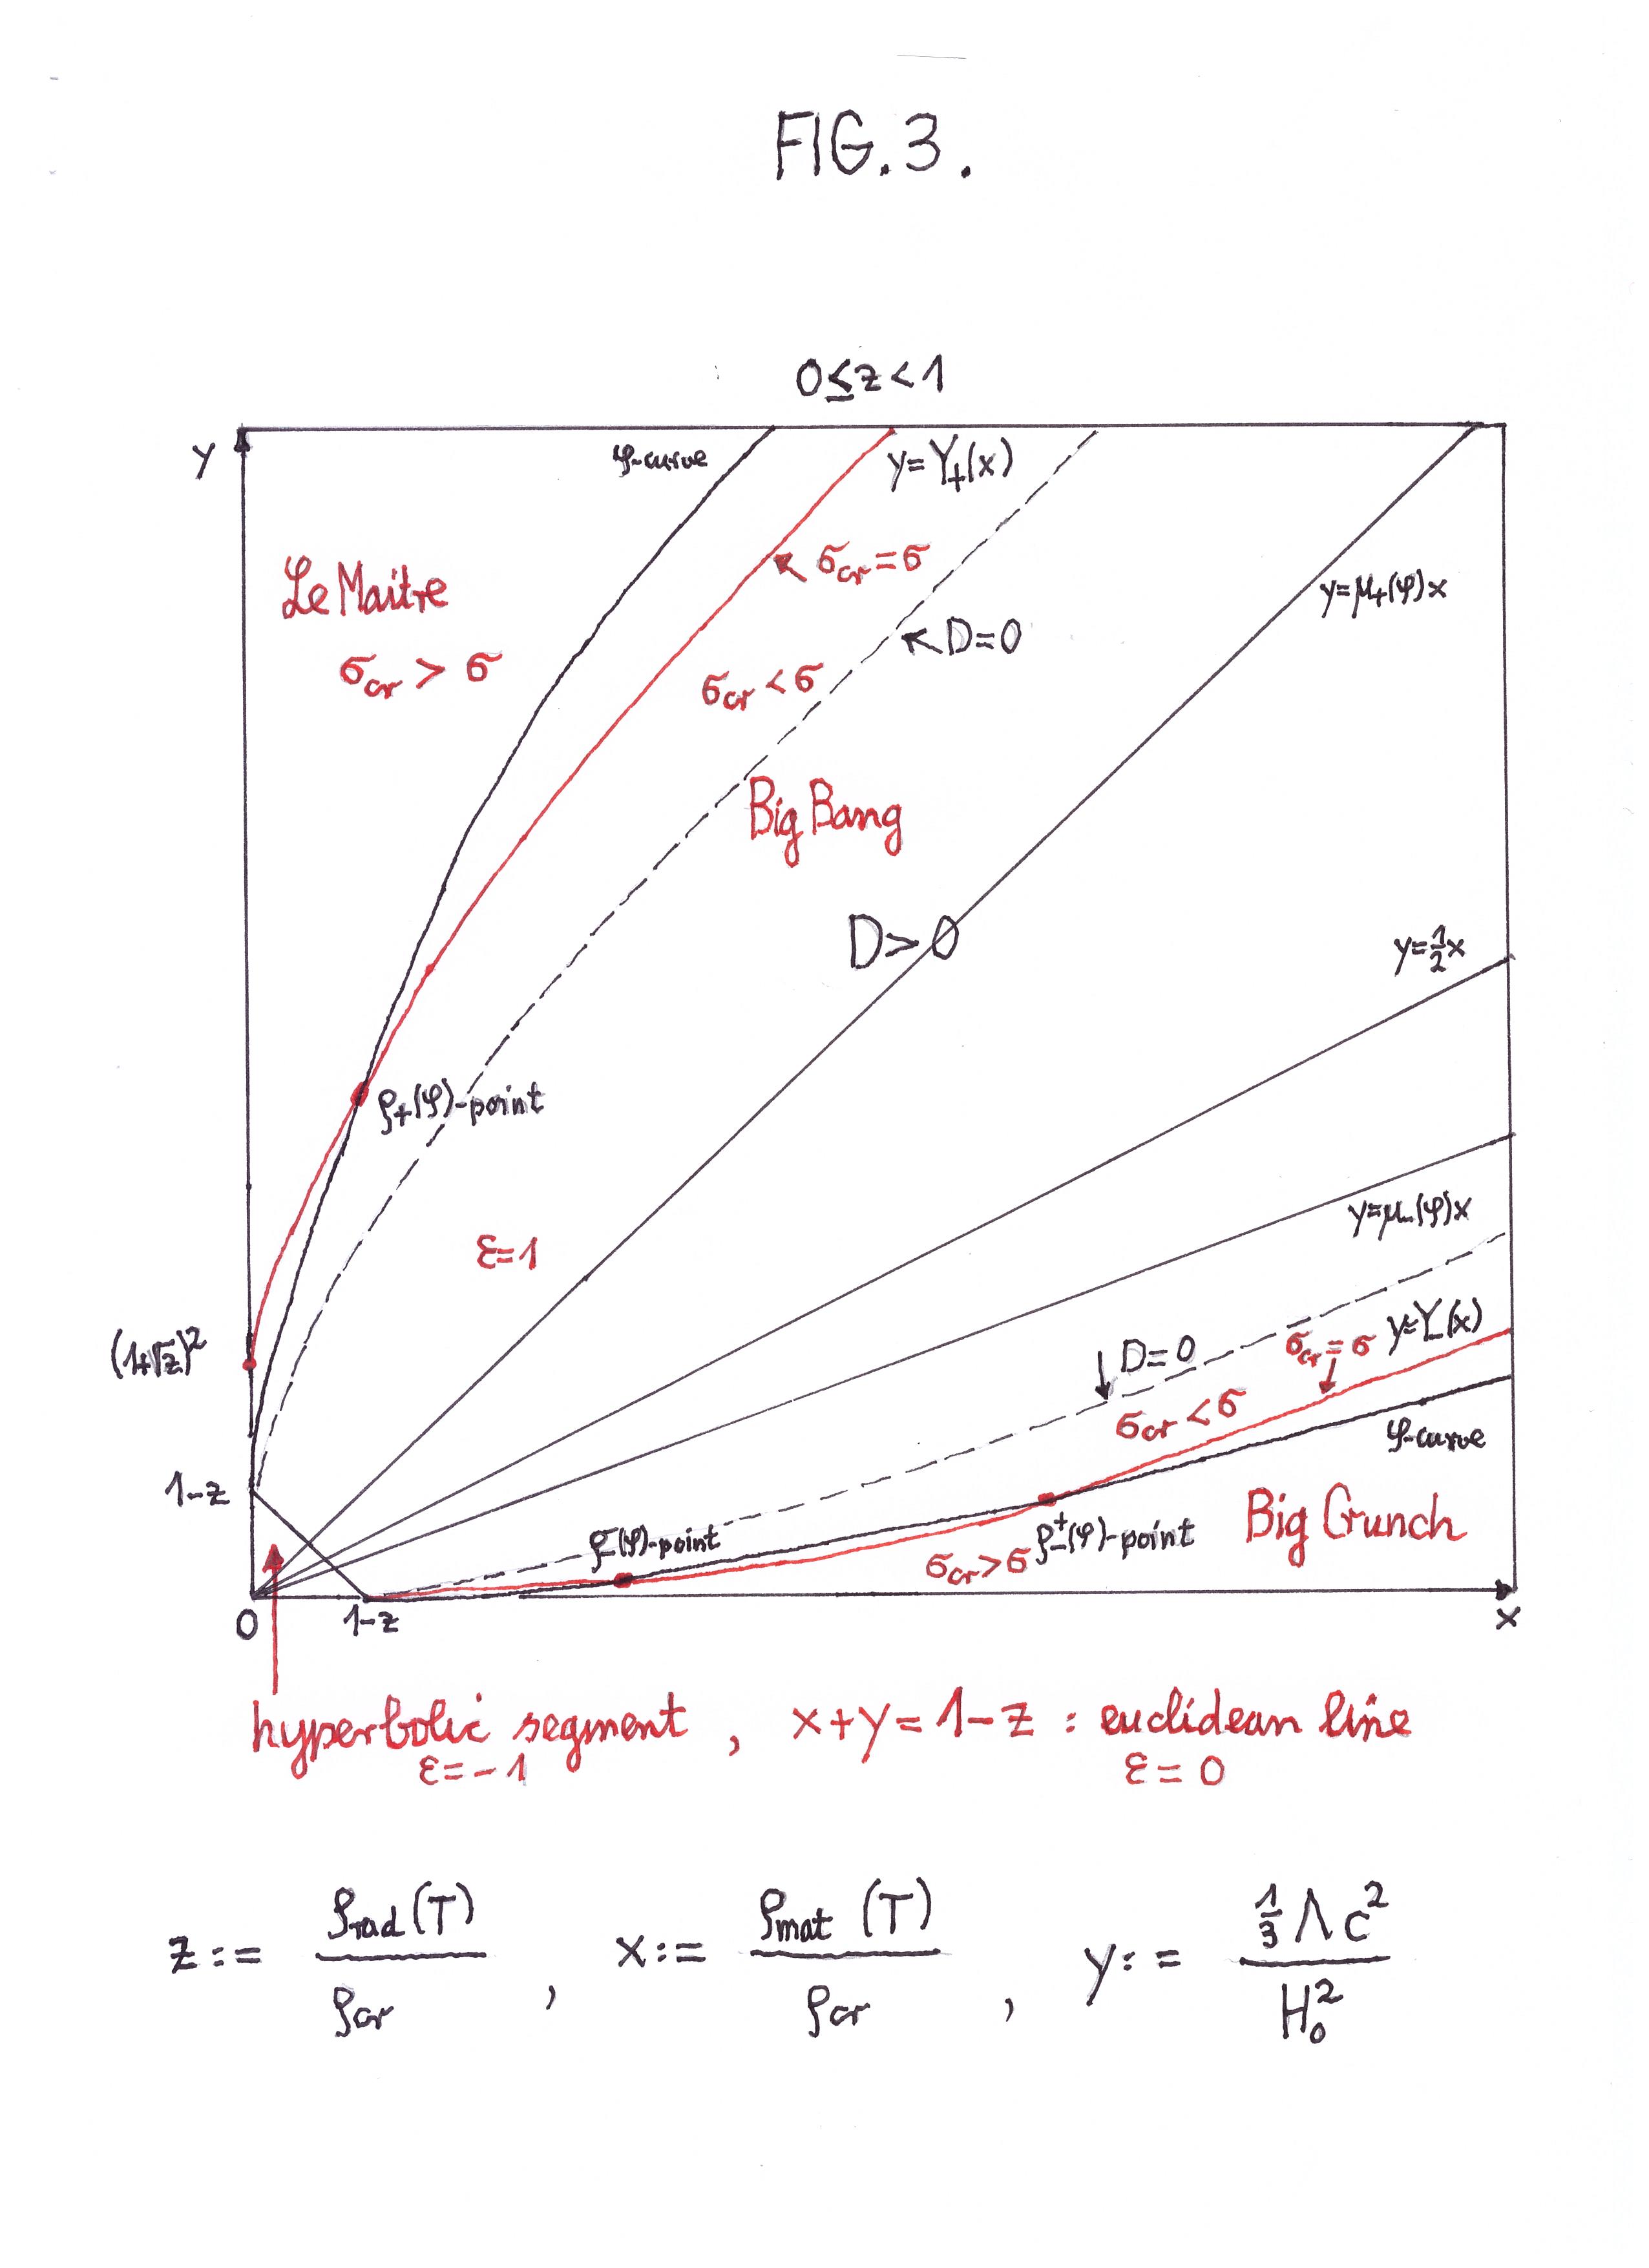 FIG. 3.
0≤z<1
y
φ-curve
y=Y₊(x)
σcr=σ
Le Maitre
σcr > σ
D=0
y=μ₊(φ)x
σcr<σ
Big Bang
D>0
y=½x
ρ₊(φ)-point
ε=1
y=μ₋(φ)x
(1+√z)²
D=0
σcr=σ
y=Y₋(x)
σcr<σ
φ-curve
1-z
ρ₋(φ)-point
ρ₋⁺(φ)-point
Big Crunch
σcr>σ
0
1-z
x
hyperbolic segment , x+y=1-z : euclidean line
ε=-1 ε=0
z:= ρrad(T)/ρcr , x:= ρmat(T)/ρcr , y:= ⅓Λc²/H₀²